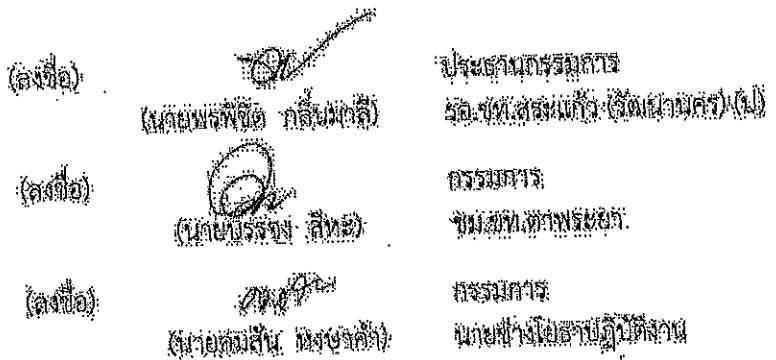 (ลงชื่อ) ประธานกรรมการ
(นายพรพิชิต กลิ่นมาลี) รอ.ขท.สระแก้ว (วัฒนานคร) (ป)
(ลงชื่อ) กรรมการ
(นายบรรจง สีหะ) ขม.ขท.ตาพระยา.
(ลงชื่อ) กรรมการ
(นายสมสัน หงษาคำ) นายช่างโยธาปฏิบัติงาน